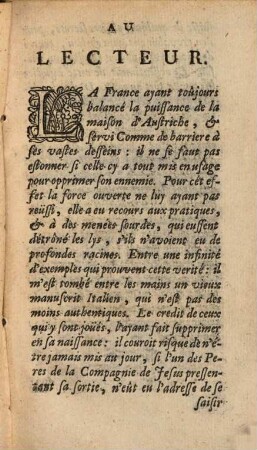 AU
LECTEUR.
LA France ayant toûjours
balancé la puissance de la
maison d'Austriche, &
servi Comme de barriere à
sès vastes desseins : il ne se faut pas
estonner si celle-cy a tout mis en usage
pour opprimer son ennemie. Pour cét ef-
fet la force ouverte ne luy ayant pas
reüssi, elle a eu recours aux pratiques,
& à des menées sourdes, qui eussent
détrôné les lys, s'ils n'avoient eu de
profondes racines. Entre une infinité
d'exemples qui prouvent cette verité : il
m'est tombé entre les mains un vieux
manuscrit Italien, qui n'est pas des
moins authentiques. Ee credit de ceux
qui y sont joüés, l'ayant fait supprimer
en sa naissance : il couroit risque de n'é-
tre jamais mis au jour, si l'un des Pe-
res de la Compagnie de Jesus pressen-
tant sa sortie, n'eût eu l'adresse de se
saisir